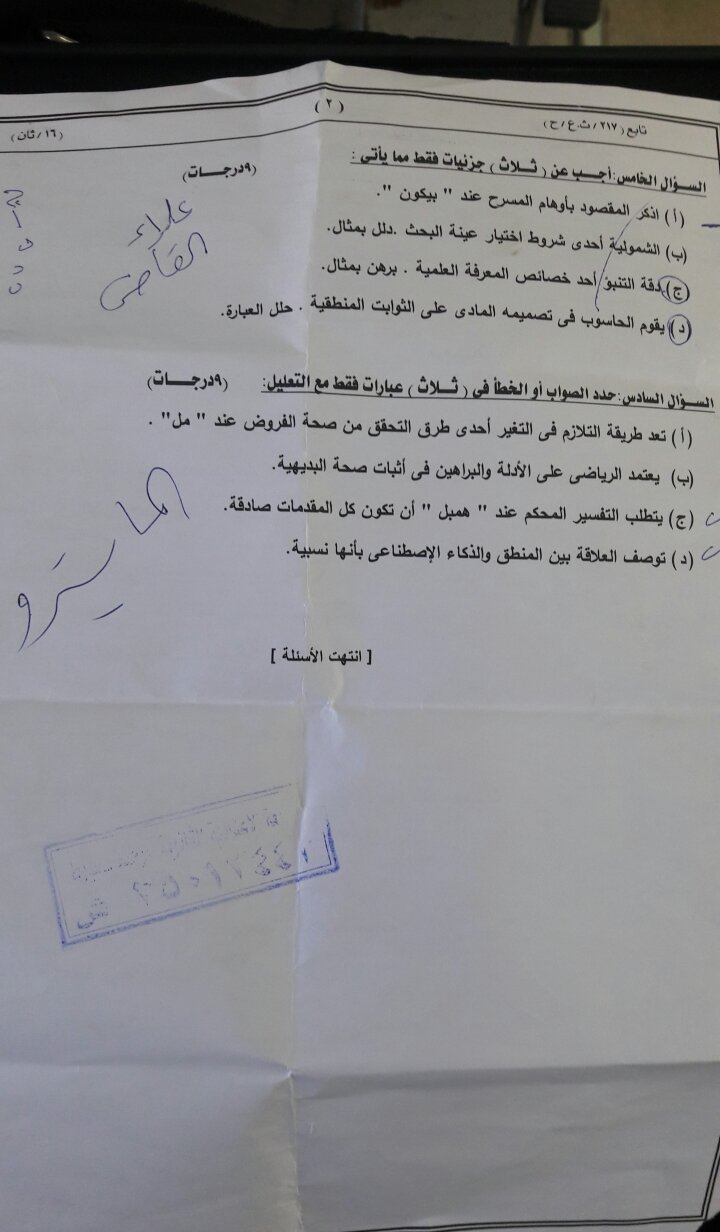 (٢)
تابع (٢١٧/ ث.ع/ ح)
(١٦/ثان)
السؤال الخامس: أجب عن ( ثلاث ) جزئيات فقط مما يأتى :
(٩درجات)
(أ) اذكر المقصود بأوهام المسرح عند " بيكون ".
(ب) الشمولية أحدى شروط اختيار عينة البحث .دلل بمثال.
(ج) دقة التنبؤ أحد خصائص المعرفة العلمية . برهن بمثال.
(د) يقوم الحاسوب فى تصميمه المادى على الثوابت المنطقية . حلل العبارة.
علاء
القاضى
السؤال السادس: حدد الصواب أو الخطأ فى ( ثلاث ) عبارات فقط مع التعليل:
(٩درجات)
(أ) تعد طريقة التلازم فى التغير أحدى طرق التحقق من صحة الفروض عند " مل" .
(ب) يعتمد الرياضى على الأدلة والبراهين فى أثبات صحة البديهية.
(ج) يتطلب التفسير المحكم عند " همبل " أن تكون كل المقدمات صادقة.
(د) توصف العلاقة بين المنطق والذكاء الإصطناعى بأنها نسبية.
المايسترو
[ انتهت الأسئلة ]